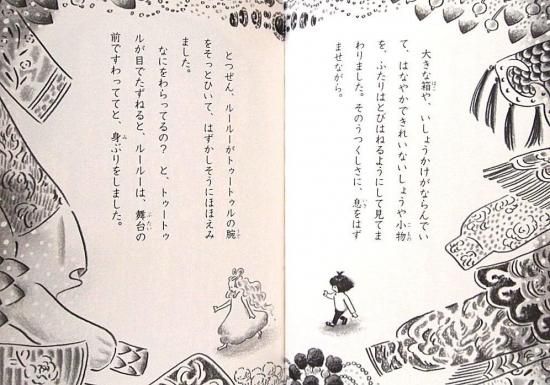 大きな箱や、いしょうかけがならんでい
て、はなやかできれいないしょうや小物
を、ふたりはとびはねるようにして見てま
わりました。そのうつくしさに、息をはず
ませながら。
とつぜん、ルールーがトゥートゥルの腕
をそっとひいて、はずかしそうにほほえみ
ました。
なにをわらってるの？　と、トゥートゥ
ルが目でたずねると、ルールーは、舞台の
前ですわってると、身ぶりをしました。